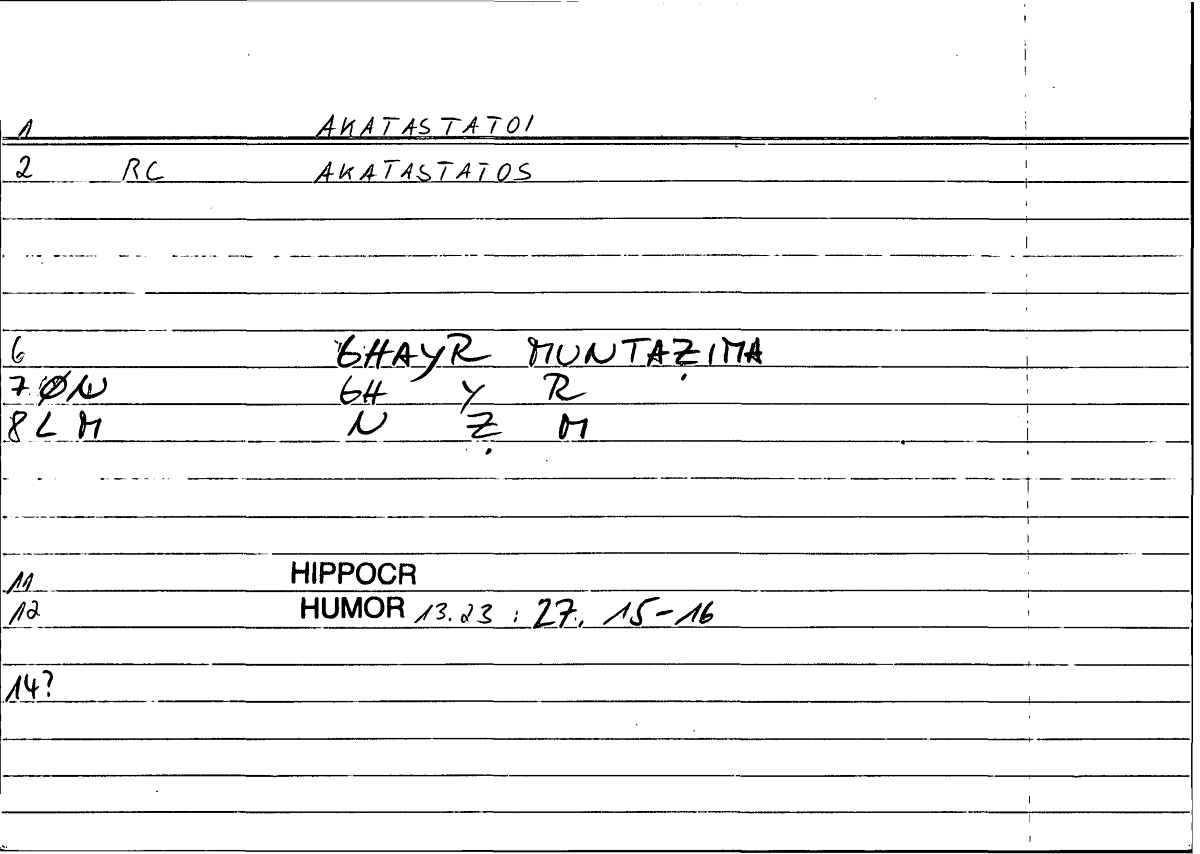 1 AKATASTATOI
2 RC AKATASTATOS
6 GHAYR MUNTAẒIMA
7 ØN GH Y R
8 L M N Ẓ M
11 HIPPOCR
12 HUMOR 13.23 : 27, 15-16
14?